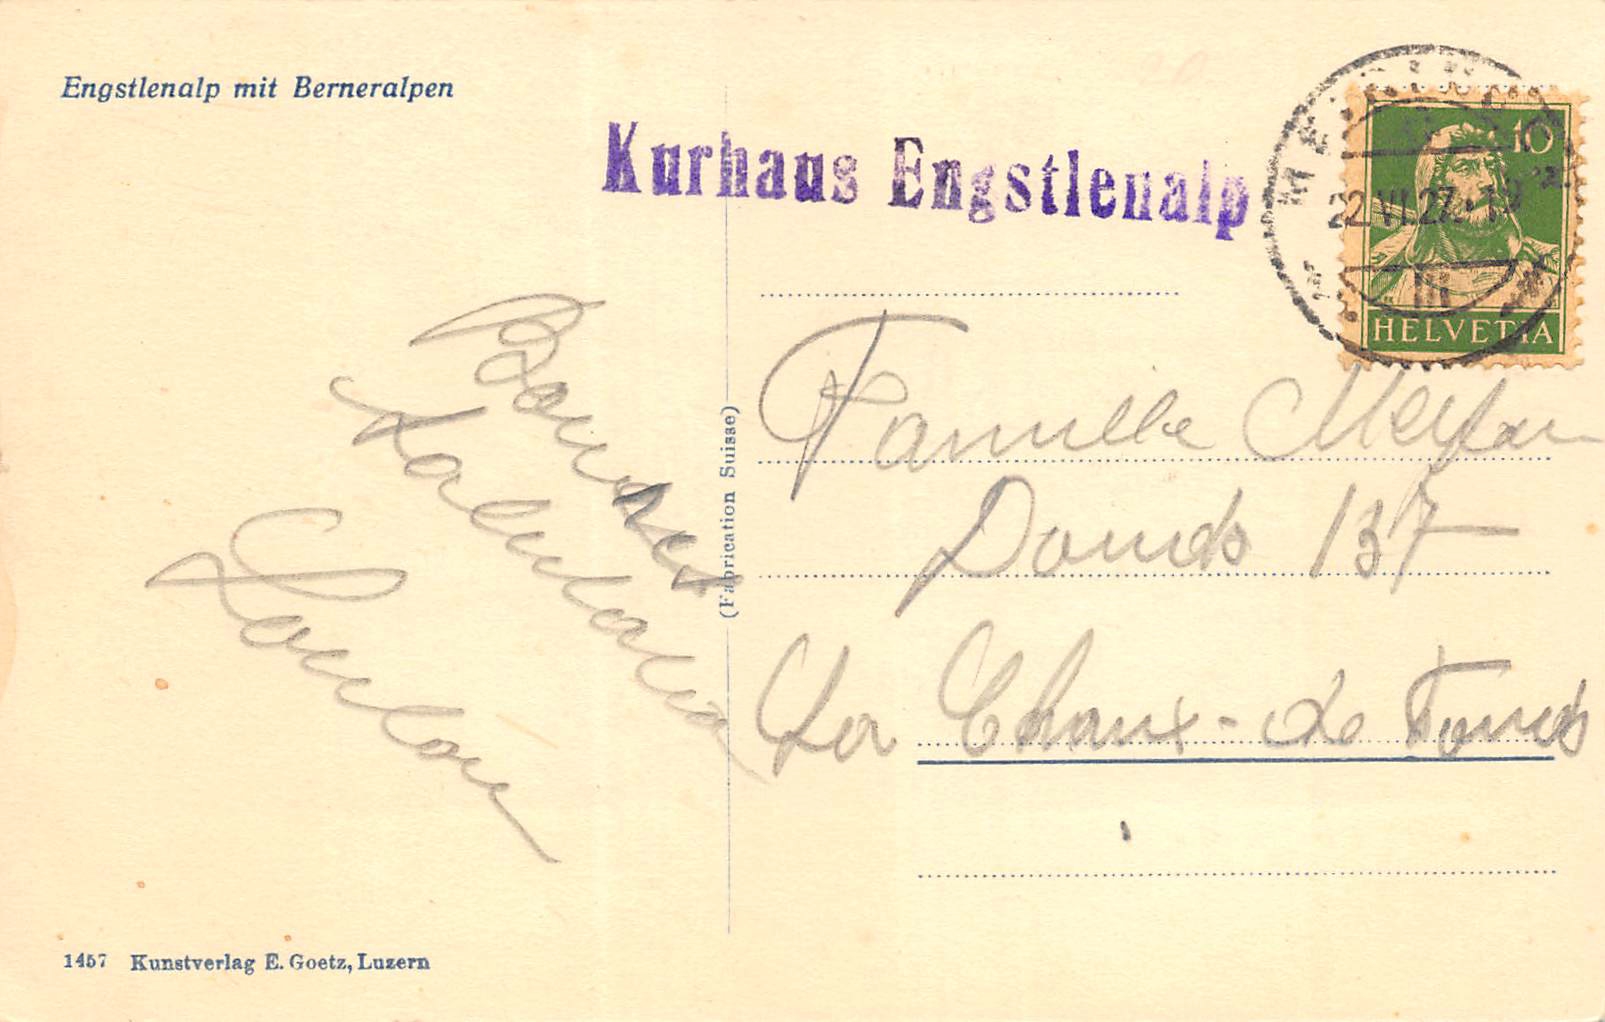 Engstlenalp mit Berneralpen
Kurhaus Engstlenalp
22.VI.27.-19
III
10
HELVETIA
Bonnes
Loulou
(Fabrication Suisse)
Famille Meylan
Doubs 137
La Chaux-de Fonds
1457 Kunstverlag E. Goetz, Luzern